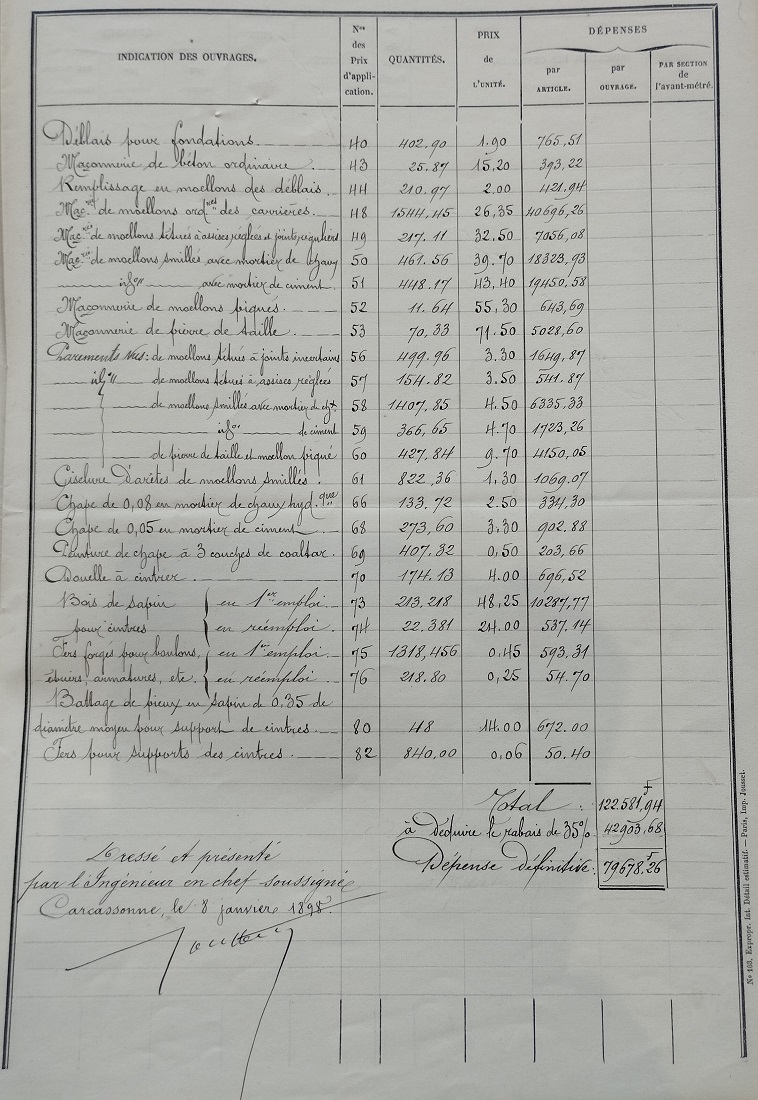 INDICATION DES OUVRAGES.
Nos des Prix d'appli-cation.
QUANTITÉS.
PRIX de L'UNITÉ.
DÉPENSES
par ARTICLE.
par OUVRAGE.
PAR SECTION de l'avant-métré.
Déblais pour fondations. 40 402.90 1.90 765,51
Maçonnerie de béton ordinaire. 43 25.87 15,20 393,22
Remplissage en moellons des déblais. 44 210.97 2,00 421.94
Mac.rie de moellons ord.res des carrières. 48 1544,45 26,35 40696,26
Mac.rie de moellons têtués à assises réglées et joints réguliers 49 217.11 32.50 7056,08
Mac.rie de moellons smillés avec mortier de chaux 50 461.56 39.70 18323,93
id° avec mortier de ciment. 51 448.17 43,40 19450,58
Maçonnerie de moellons piqués. 52 11.64 55,30 643,69
Maçonnerie de pierre de taille. 53 70,33 71.50 5028,60
Parements vus: de moellons têtués à joints incertains 56 499.96 3.30 1649,87
id° de moellons têtués à assises réglées 57 154.82 3.50 541.87
de moellons smillés avec mortier de chx. 58 1407,85 4.50 6335.33
id° de ciment 59 366,65 4.70 1723,26
de pierre de taille et moellon piqué 60 427,84 9.70 4150,05
Ciselure d'arêtes de moellons smillés. 61 822,36 1,30 1069,07
Chape de 0,08 en mortier de chaux hyd.que 66 133.72 2.50 334,30
Chape de 0,05 en mortier de ciment 68 273,60 3,30 902.88
Peinture de chape à 3 couches de coaltar. 69 407.32 0,50 203,66
Douelle à cintrer. 70 174.13 4.00 696,52
Bois de sapin en 1er emploi. 73 213,218 48,25 10287,77
pour cintres en réemploi. 74 22,381 24.00 537.14
Fers forgés pour boulons, en 1er emploi. 75 1318,456 0,45 593.31
étriers, armatures, etc. en réemploi. 76 218.80 0,25 54.70
Battage de pieux en sapin de 0,35 de
diamètre moyen pour support de cintres. 80 48 14.00 672.00
Fers pour supports des cintres. 82 840,00 0,06 50.40
Total: 122.581,94 f
à déduire le rabais de 35% 42903,68
Dépense définitive: 79678,26 f
Dressé et présenté
par l'Ingénieur en chef soussigné
Carcassonne, le 8 janvier 1898.
N° 103. Expropr. Int. Détail estimatif. — Paris, Imp. Jousset.